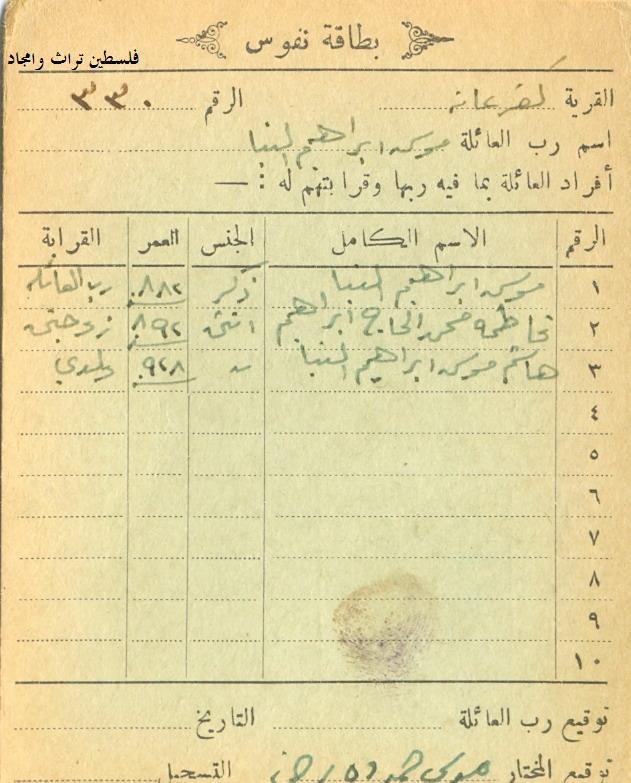 بطاقة نفوس
فلسطين تراث وامجاد
القرية كفرعانه الرقم ٣٣٠
اسم رب العائلة موسى ابراهيم البنا
أفراد العائلة بما فيه ربها وقرابتهم له : —
الرقم الاسم الكامل الجنس العمر القرابة
١ موسى ابراهيم البنا ذكر ٨٨٢ رب العائله
٢ فاطمه محمد الحاج ابراهيم انثى ٨٩٢ زوجتي
٣ هاشم موسى ابراهيم البنا ٩٢٨ ولدي
٤
٥
٦
٧
٨
٩
١٠
توقيع رب العائلة التاريخ
توقيع المختار موسى التسجيل